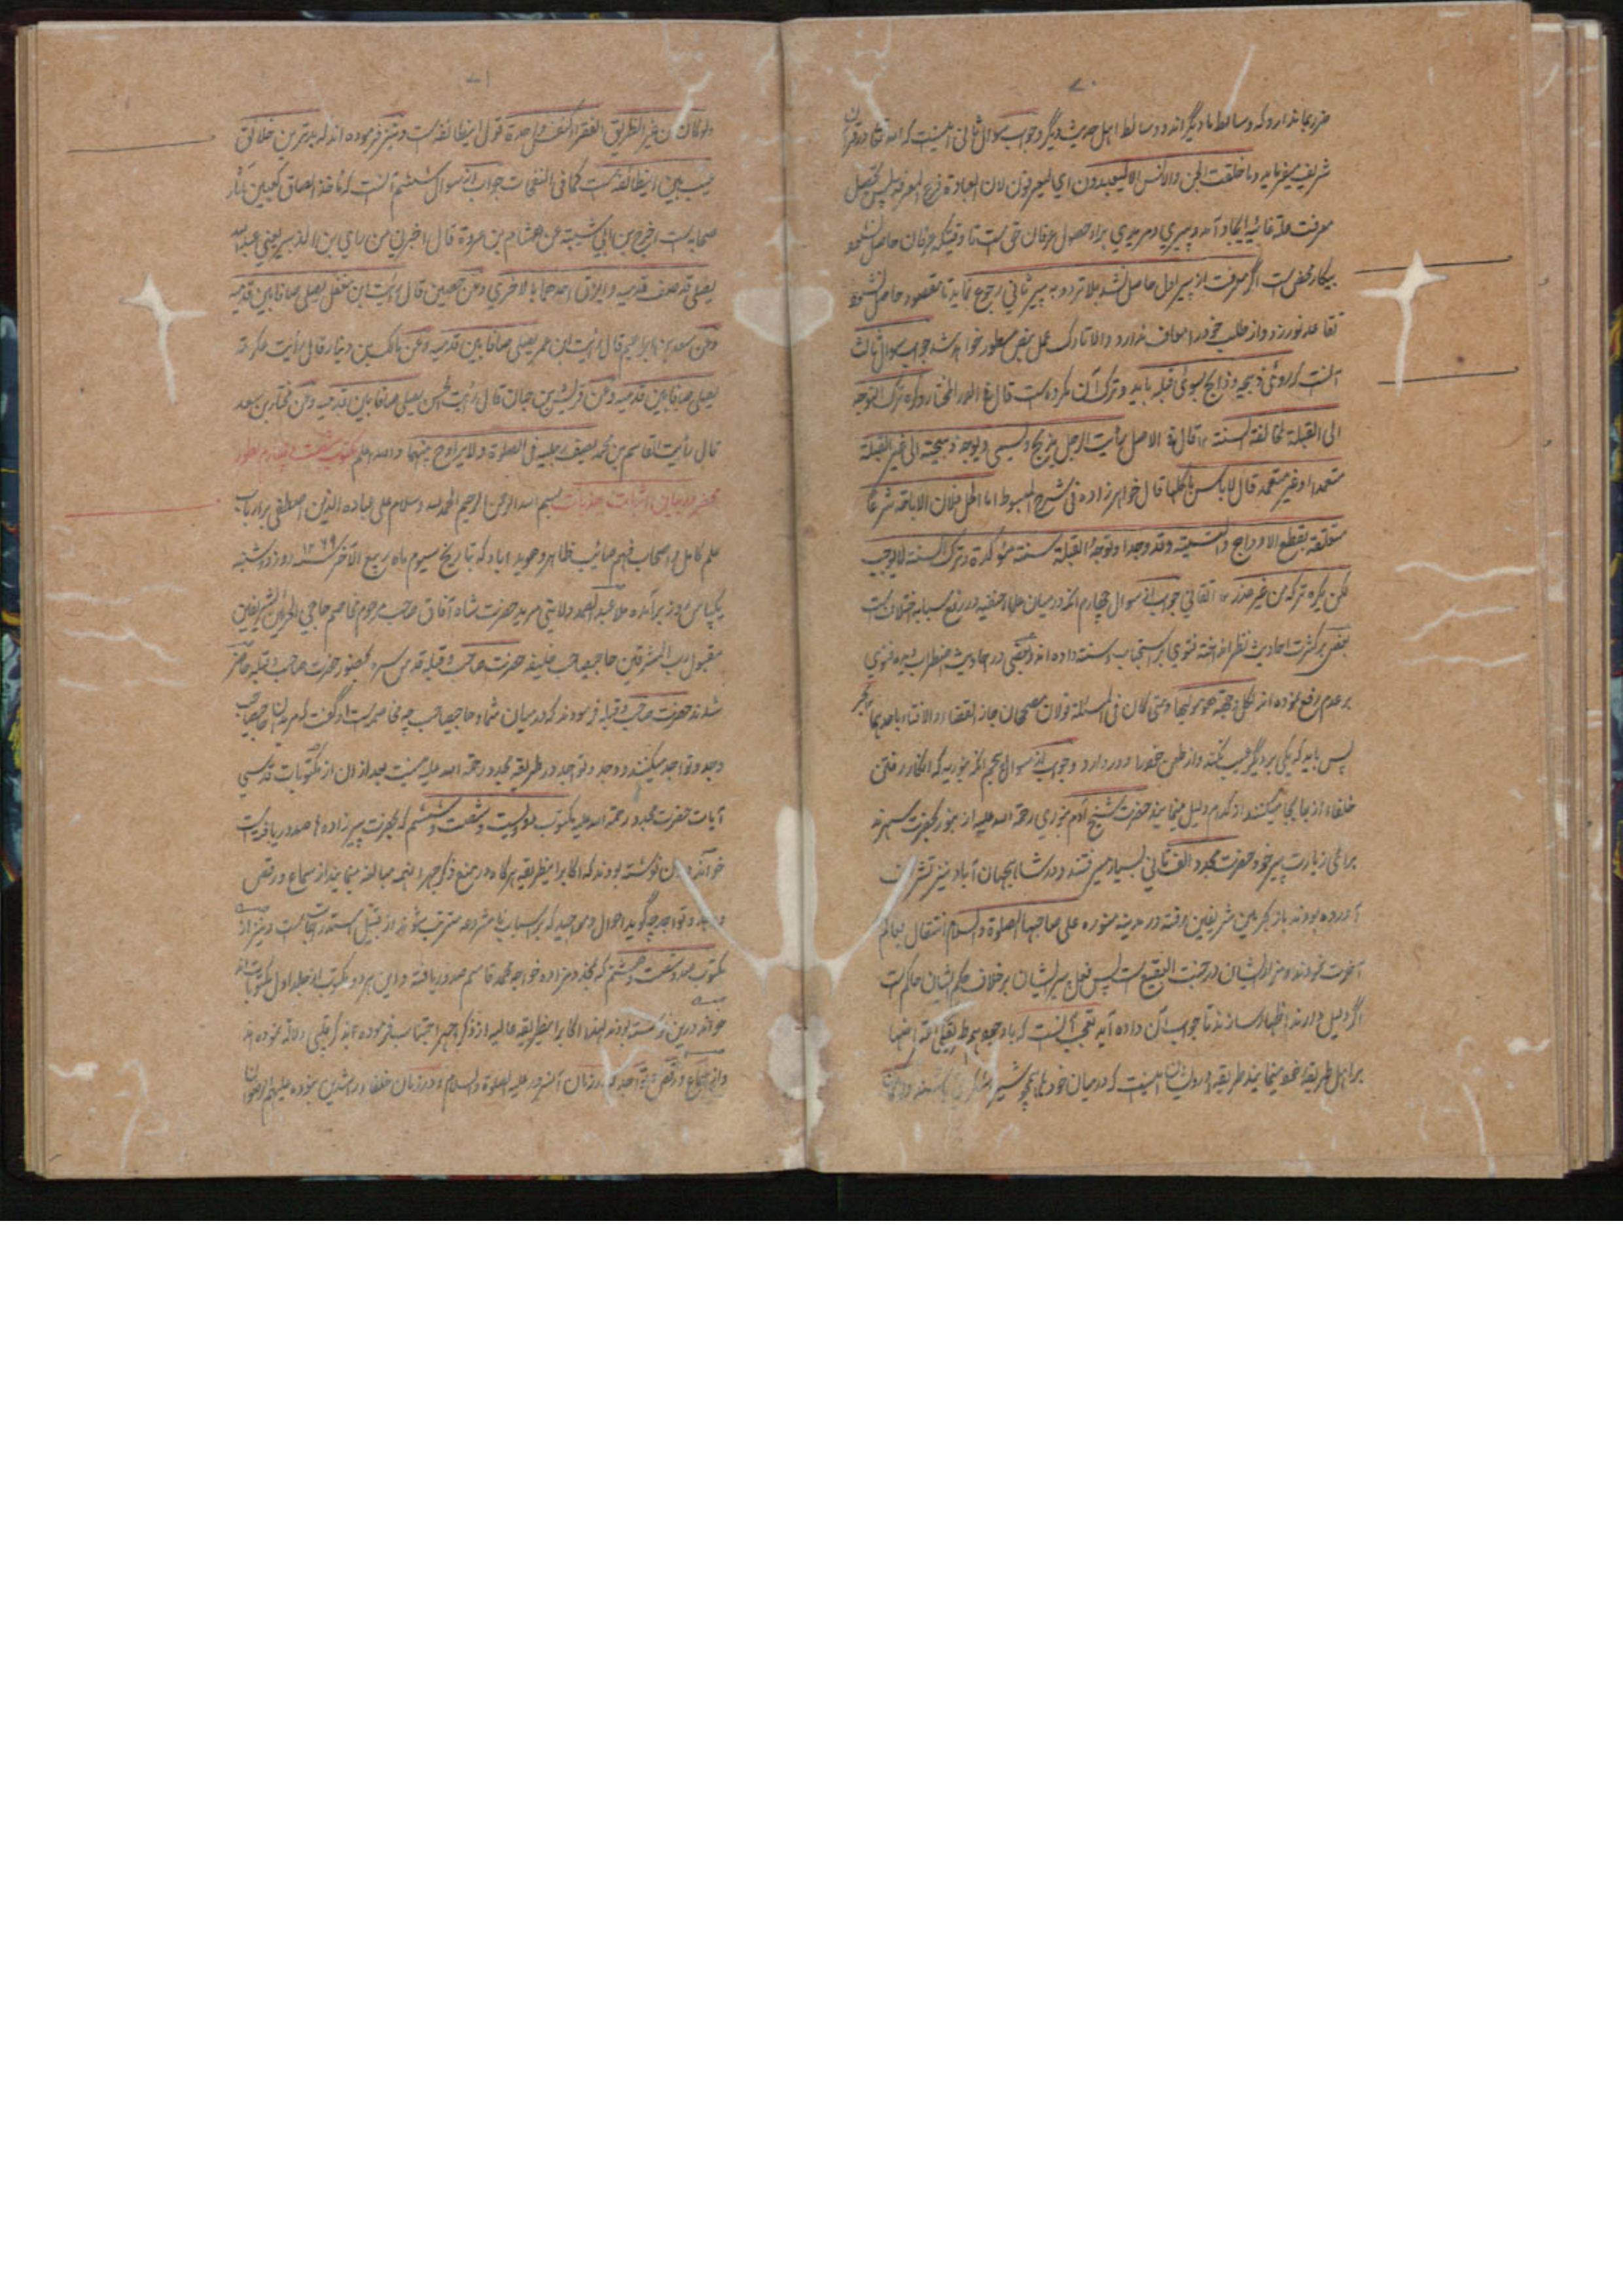 ۷۰
ضرر بما ندارد که وسائط ما دیگر اند و وسائط اهل حدیث دیگر و جواب سوال ثانی اینست که الله تعالی در قرآن
شریف میفرماید وما خلقت الجن والانس الا لیعبدون ای لیعرفون لان العبادة فرع المعرفة پس تحصیل
معرفت علة غائیه ایجاد آمد و پیری و مریدی برای حصول عرفان حق است تا وقتیکه عرفان حاصل نشود
بیکار محض است اگر معرفت از پیر اول حاصل نشد بلا تردد به پیر ثانی رجوع نماید تا مقصود حاصل شود
تقاعد نورزد و از طلب خود را معاف ندارد والا تارک عمل بنص مسطور خواهد شد جواب سوال ثالث
آنست که روئی ذبیحه و ذابح بسوئی قبله باید و ترک آن مکروه است قال فی الدر المختار وکره ترک التوجه
الی القبلة لمخالفته السنة قال فی الاصل رأیت الرجل یذبح ویسمی ویوجه ذبیحته الی غیر القبلة
متعمدا او غیر متعمد قال لا باس باکلها قال خواهر زاده فی شرح المبسوط اما الحل فلان الاباحة شرعا
متعلقة بقطع الاوداج والتسمیة وقد وجدا وتوجه القبلة سنة مؤکدة وترک السنة لا یوجب
لکن یکره ترکه من غیر عذر اتقانی جواب از سوال چهارم آنکه درمیان علماء حنفیه در رفع سبابه اختلاف است
بعضی بر کثرت احادیث نظر انداخته فتوی بر استحباب و سنت داده اند و بعضی در احادیث اضطراب دیده فتوی
بر عدم رفع نموده اند لکل وجهة هو مولیها ومتی کان فی المسئلة قولان مصححان جاز القضاء والافتاء باحدهما
پس باید که یکی بر دیگر عیب نکند و از طعن خود را دور دارد و جواب از سوال پنجم آنکه منوریه که انکار رفتن
خلفاء از جا بجا میکنند از کدام دلیل مینمایند حضرت شیخ آدم بنوری رحمة الله علیه از بنور بحضرت سهرند
برائی زیارت پیر خود حضرت مجدد الف ثانی بسیار میرفتند و در شاهجهان آباد نیز تشریف
آورده بودند باز بحرمین شریفین رفته در مدینه منوره علی صاحبها الصلوة والسلام انتقال بعالم
آخرت نمودند و مزار ایشان در جنت البقیع است پس فعل پیر ایشان بر خلاف حکم ایشان حاکم است
اگر دلیل دارند اظهار سازند تا جواب آن داده آید تعجب آنست که باوجود هم طریقگی
بر اهل طریقه خود مینمایند طریقه درویشان اینست که درمیان خودها همچو شیر
۷۱
ولو کان من غیر الطریق الفقراء کنفس واحدة قول اینطائفه است و نیز فرموده اند که بدترین خلائق
عیب بین اینطائفه است کما فی النفحات جواب از سوال ششم آنست که مأخذ الصاق کعبین آثار
صحابه است اخرج بن ابی شیبة عن هشام بن عروة قال اخبرنی من رای بن الزبیر یعنی عبدالله
یصلی قد صف قدمیه والزق احدهما بالاخری وعن عیین قال رأیت ابن معقل یصلی صافا بین قدمیه
وعن سعد بن ابراهیم قال رأیت ابن عمر یصلی صافا بین قدمیه وعن مالک بن دینار قال رأیت عکرمة
یصلی صافا بین قدمیه وعن قریش بن حیان قال رأیت الحسن یصلی صافا بین قدمیه وعن مختار بن سعد
قال رأیت القاسم بن محمد یصف رجلیه فی الصلوة ولا یراوح بینهما والله اعلم مکتوب شصت و چهارم بطور
محضر در بیان اثبات جذبات بسم الله الرحمن الرحیم الحمد لله وسلام علی عباده الذین اصطفی بر ارباب
علم کامل و اصحاب فهم صائب ظاهر و هویدا باد که بتاریخ سیوم ماه ربیع الآخر سنه ۱۲۶۹ روز دوشنبه
یکپاس روز برآمده ملا عبدالصمد ولایتی مرید حضرت شاه آفاق صاحب مرحوم مخاصم حاجی الحرمین الشریفین
مقبول رب المشرقین حاجیصاحب خلیفه حضرت صاحب و قبله قدس سره بحضور حضرت صاحب و قبله حاضر
شدند حضرت صاحب و قبله فرمودند که درمیان شما و حاجیصاحب چه مخاصمه است او گفت که مریدان حاجیصاحب
وجد و تواجد میکنند و وجد و تواجد در طریقه مجدد رحمة الله علیه نیست بعد ازان از مکتوبات قدسی
آیات حضرت مجدد رحمة الله علیه مکتوب دویست و شصت و ششم که بحضرت پیرزاده ها صدور یافته است
خواند درآن نوشته بودند که اکابر اینطریقه هرگاه در منع ذکر جهر اینهمه مبالغه مینمایند از سماع و رقص
و وجد و تواجد چه گوید احوال و مواجید که بر اسباب نامشروعه مترتب شوند از قبیل استدراجات است و نیز از
مکتوب صد و شصت و هشتم که بمخدوم زاده خواجه محمد قاسم صدور یافته و این هر دو مکتوب از جلد اول مکتوبات اند
خواند درین نوشته بودند ایضا اکابر اینطریقه عالیه از ذکر جهر اجتناب فرموده بذکر قلبی دلالة نموده اند
و از سماع و رقص و وجد و تواجد که در زمان آنسرور علیه الصلوة والسلام و در زمان خلفاء راشدین نبوده علیهم الرضوان